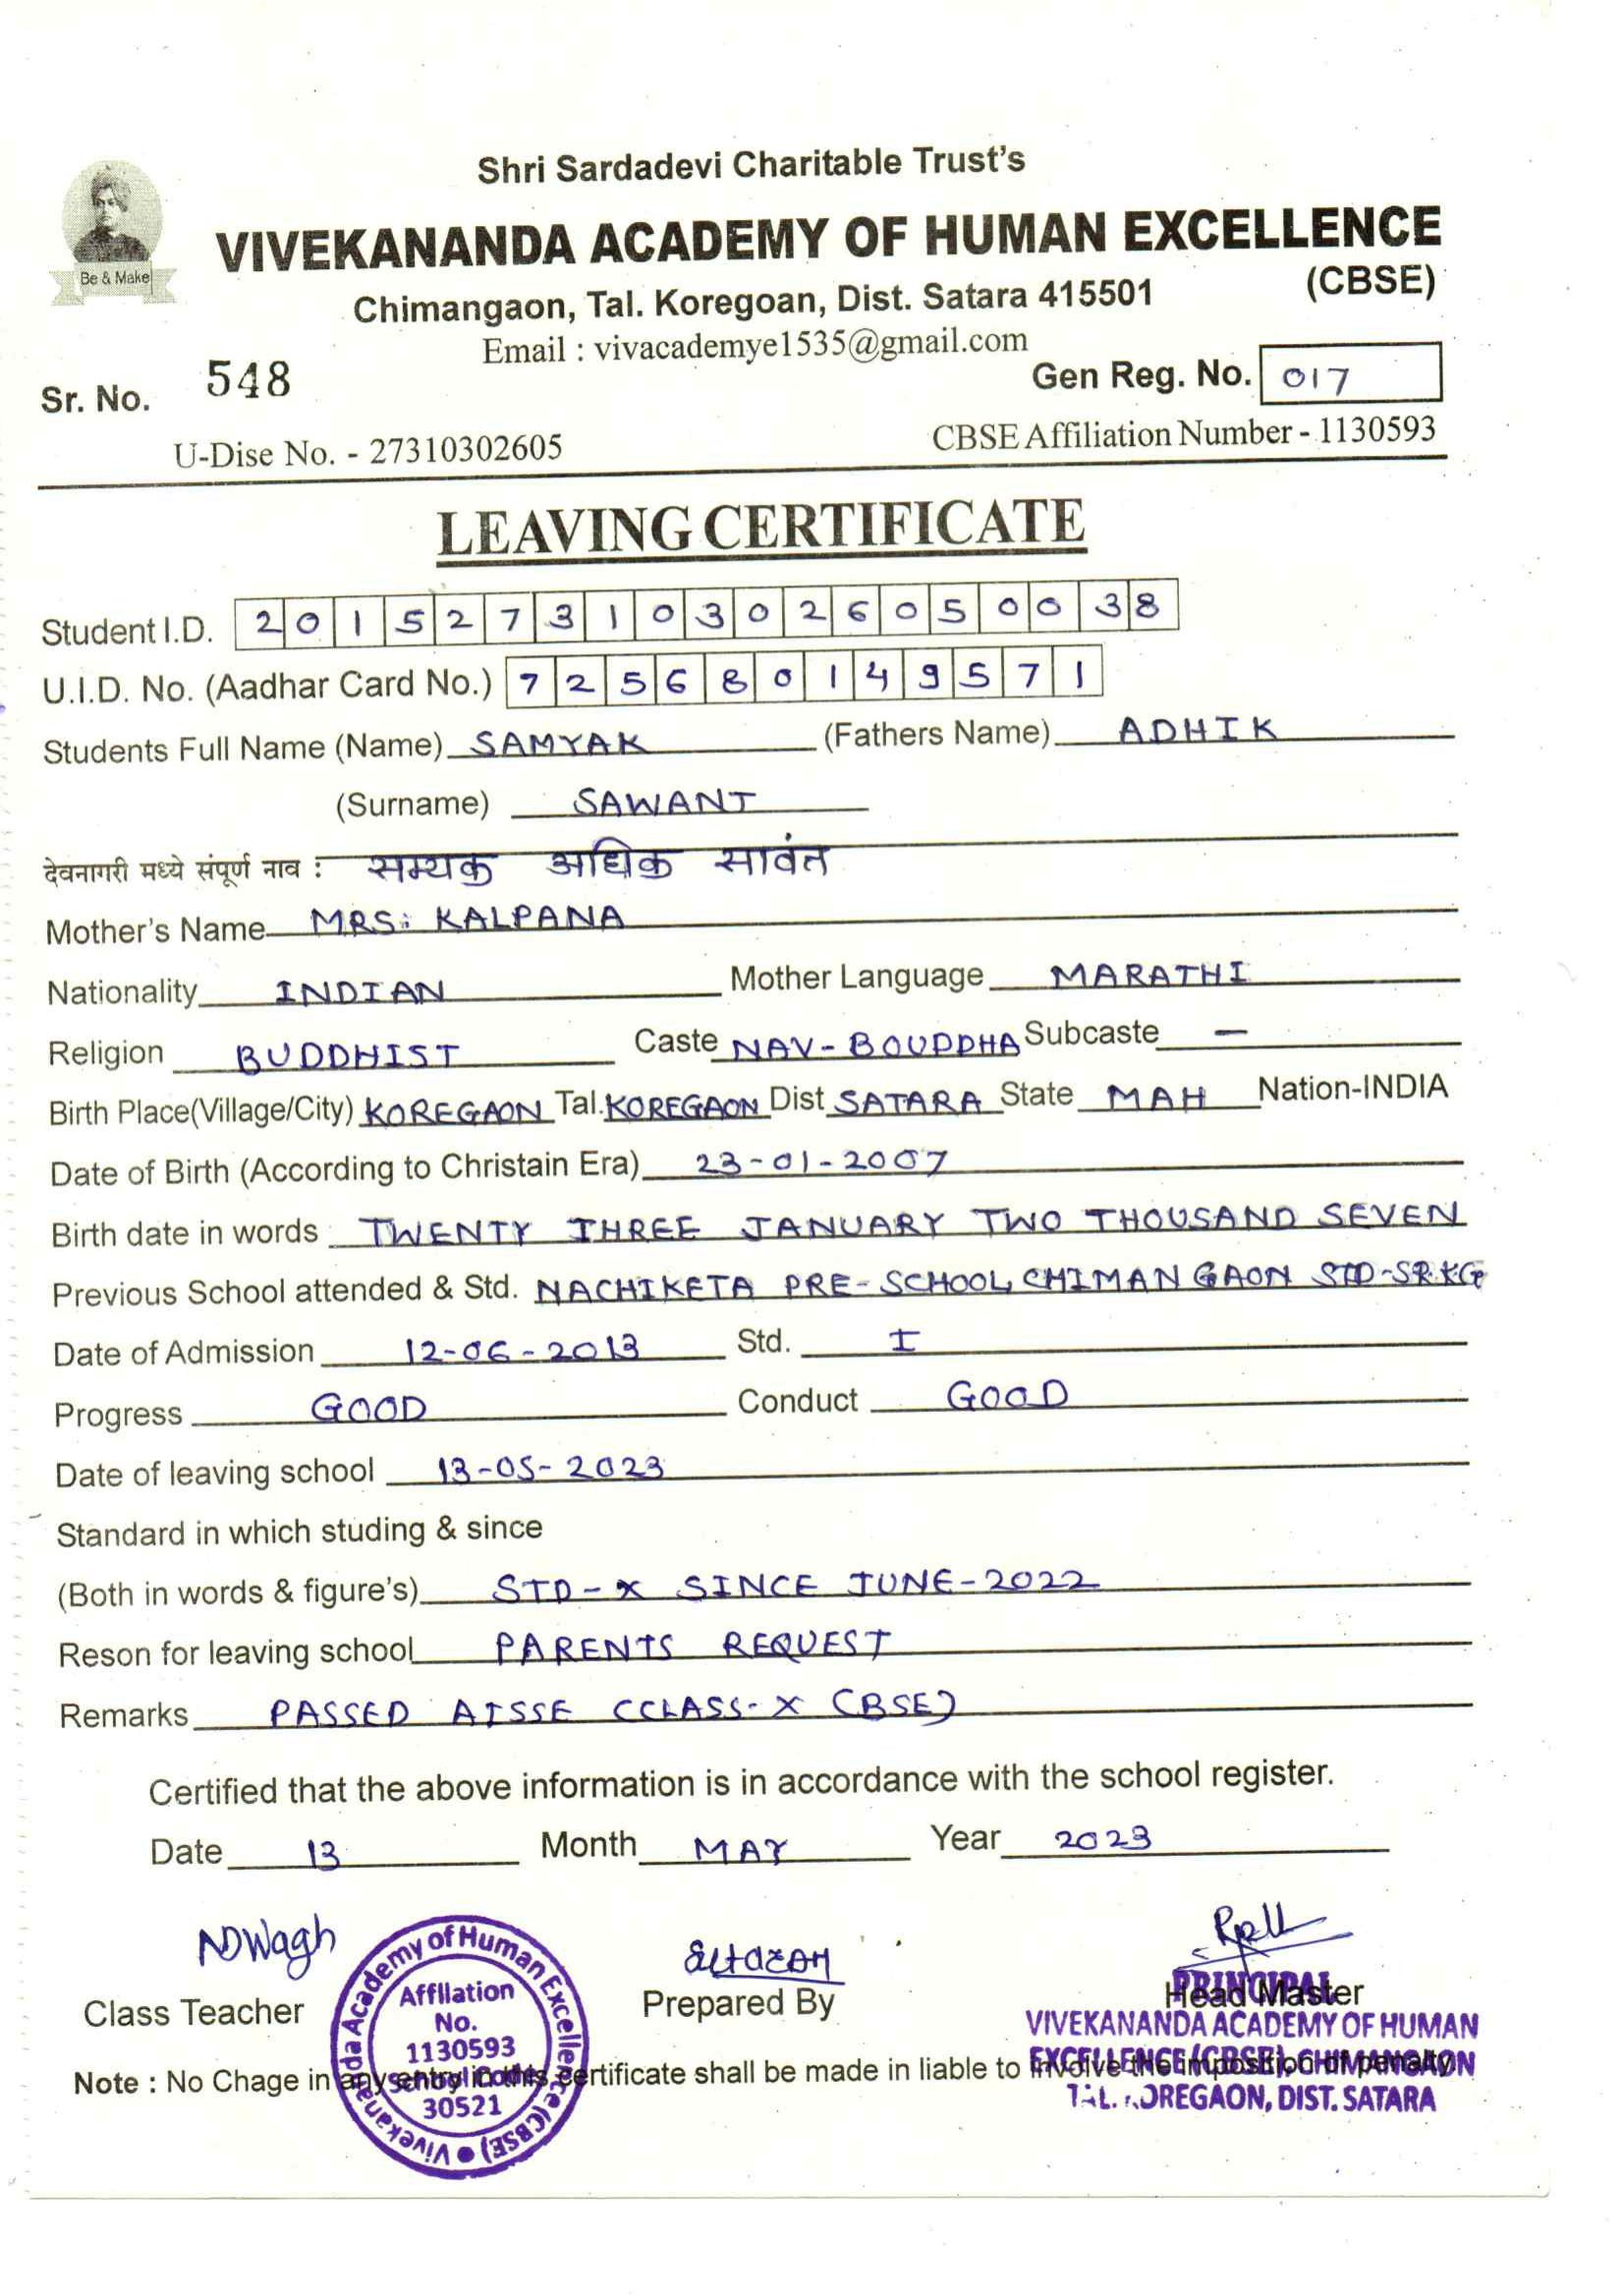 Shri Sardadevi Charitable Trust's
VIVEKANANDA ACADEMY OF HUMAN EXCELLENCE
(CBSE)
Be & Make
Chimangaon, Tal. Koregoan, Dist. Satara 415501
Email : vivacademye1535@gmail.com
Sr. No. 548 Gen Reg. No. 017
U-Dise No. - 27310302605 CBSE Affiliation Number - 1130593
LEAVING CERTIFICATE
Student I.D. 2015273103026050038
U.I.D. No. (Aadhar Card No.) 725680149571
Students Full Name (Name) SAMYAK (Fathers Name) ADHIK
(Surname) SAWANT
देवनागरी मध्ये संपूर्ण नाव : सम्यक अधिक सावंत
Mother's Name MRS: KALPANA
Nationality INDIAN Mother Language MARATHI
Religion BUDDHIST Caste NAV-BOUDDHA Subcaste —
Birth Place(Village/City) KOREGAON Tal. KOREGAON Dist SATARA State MAH Nation-INDIA
Date of Birth (According to Christain Era) 23-01-2007
Birth date in words TWENTY THREE JANUARY TWO THOUSAND SEVEN
Previous School attended & Std. NACHIKETA PRE-SCHOOL, CHIMANGAON STD-SR.KG
Date of Admission 12-06-2013 Std. I
Progress GOOD Conduct GOOD
Date of leaving school 13-05-2023
Standard in which studing & since
(Both in words & figure's) STD-X SINCE JUNE-2022
Reson for leaving school PARENTS REQUEST
Remarks PASSED AISSE (CLASS-X CBSE)
Certified that the above information is in accordance with the school register.
Date 13 Month MAY Year 2023
NDWagh
Class Teacher Prepared By Head Master
PRINCIPAL
VIVEKANANDA ACADEMY OF HUMAN
EXCELLENCE (CBSE), CHIMANGAON
TAL. KOREGAON, DIST. SATARA
Vivekananda Academy of Human Excellence (CBSE)
Affiliation
No.
1130593
School Code
30521
Note : No Chage in any entry in this certificate shall be made in liable to involve the imposition of penalty.